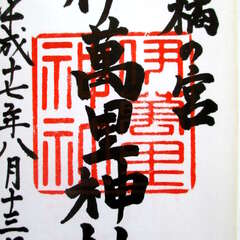 橘の宮
伊萬里神社
平成十七年八月十三日
伊萬里
神社